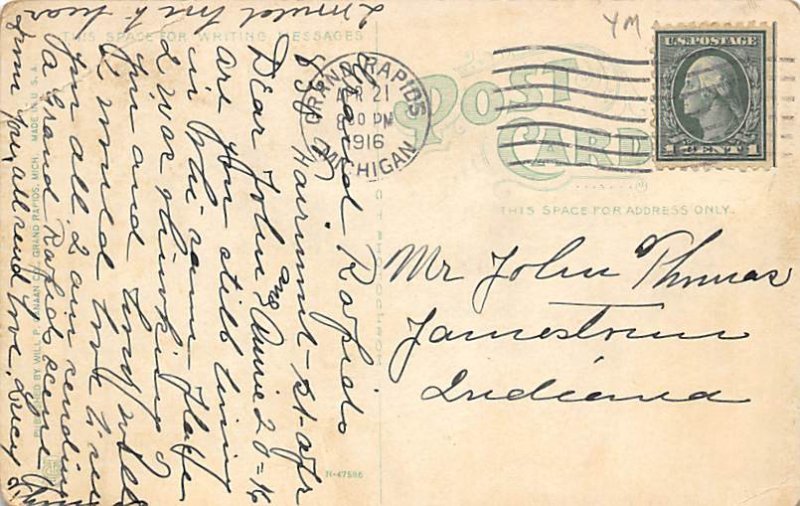 THIS SPACE FOR WRITING MESSAGES
POST
CARD
THIS SPACE FOR ADDRESS ONLY.
U.S. POSTAGE
1 CENT 1
GRAND RAPIDS
APR 21
PM
1916
MICHIGAN
YM
Grand Rapids
Harriment-st-apr
Dear John and Annie 20=16
are you still living
in the same place
I was thinking of
you and
I would love to see
you all I am sending
a Grand Rapids scene
from you, all send love,
I would love to hear
Mr John Thomas
Jamestown
Indiana
PUBLISHED BY WILL P. CANAAN CO., GRAND RAPIDS, MICH. MADE IN U.S.A.
N-47586